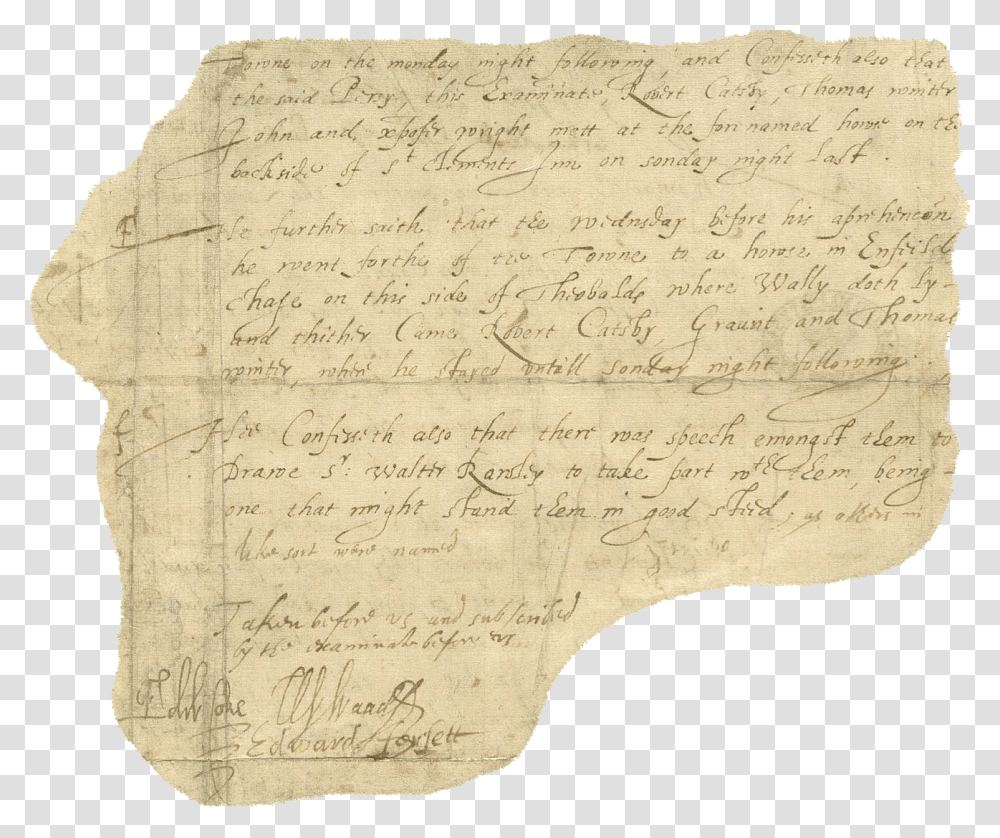 Towne on the monday night following, and Confesseth also that
the said Percy, this Examinate, Robert Catsby, Thomas winter
John and xpofer wright mett at the forenamed howse on the
backside of St Clements Inn on sonday night last.
E
He further saith that the wednsday before his aprehencon
he went forthe of the Towne to a howse in Enfeild
Chase on this side of Theobalds where Wally doth ly-
and thither Came Robert Catsby, Graunt and Thomas
winter, where he stayed vntill sonday night following.
f
Hee Confesseth also that there was speech emongst them to
Drawe Sr: Walter Rawley to take part wth them, being
one that might stand them in good steed, as others in
like sort were named
Taken before vs and subscribed
by the examinate before vs
Edw Coke W Waad
Edward forsett